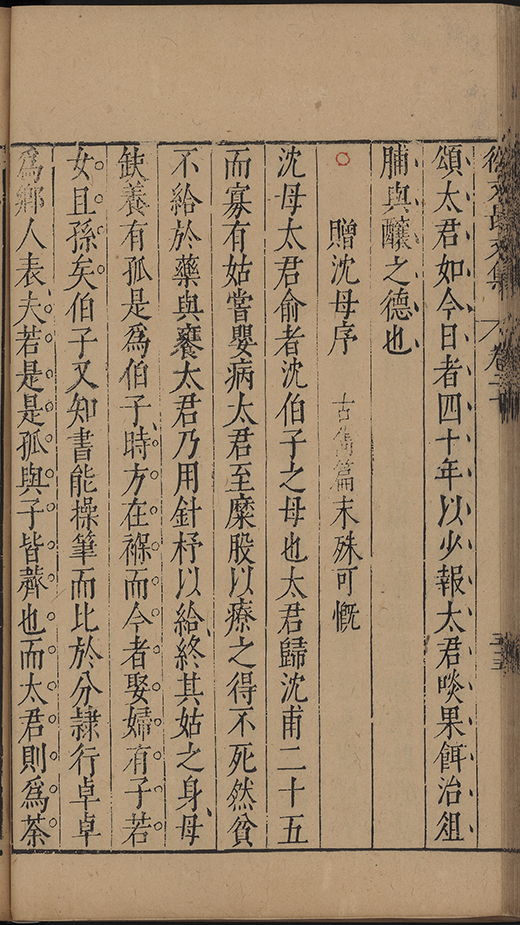 徐文長文集 卷二十
頌太君如今日者四十年以少報太君啖果餌治俎
脯與釀之德也
贈沈母序 古雋篇末殊可慨
沈母太君俞者沈伯子之母也太君歸沈甫二十五
而寡有姑嘗嬰病太君至糜股以療之得不死然貧
不給於藥與饔太君乃用針杼以給終其姑之身母
缺養有孤是為伯子時方在褓而今者娶婦有子若
女且孫矣伯子又知書能操筆而比於分隷行卓卓
為鄉人表夫若是是孤與子皆薺也而太君則為荼